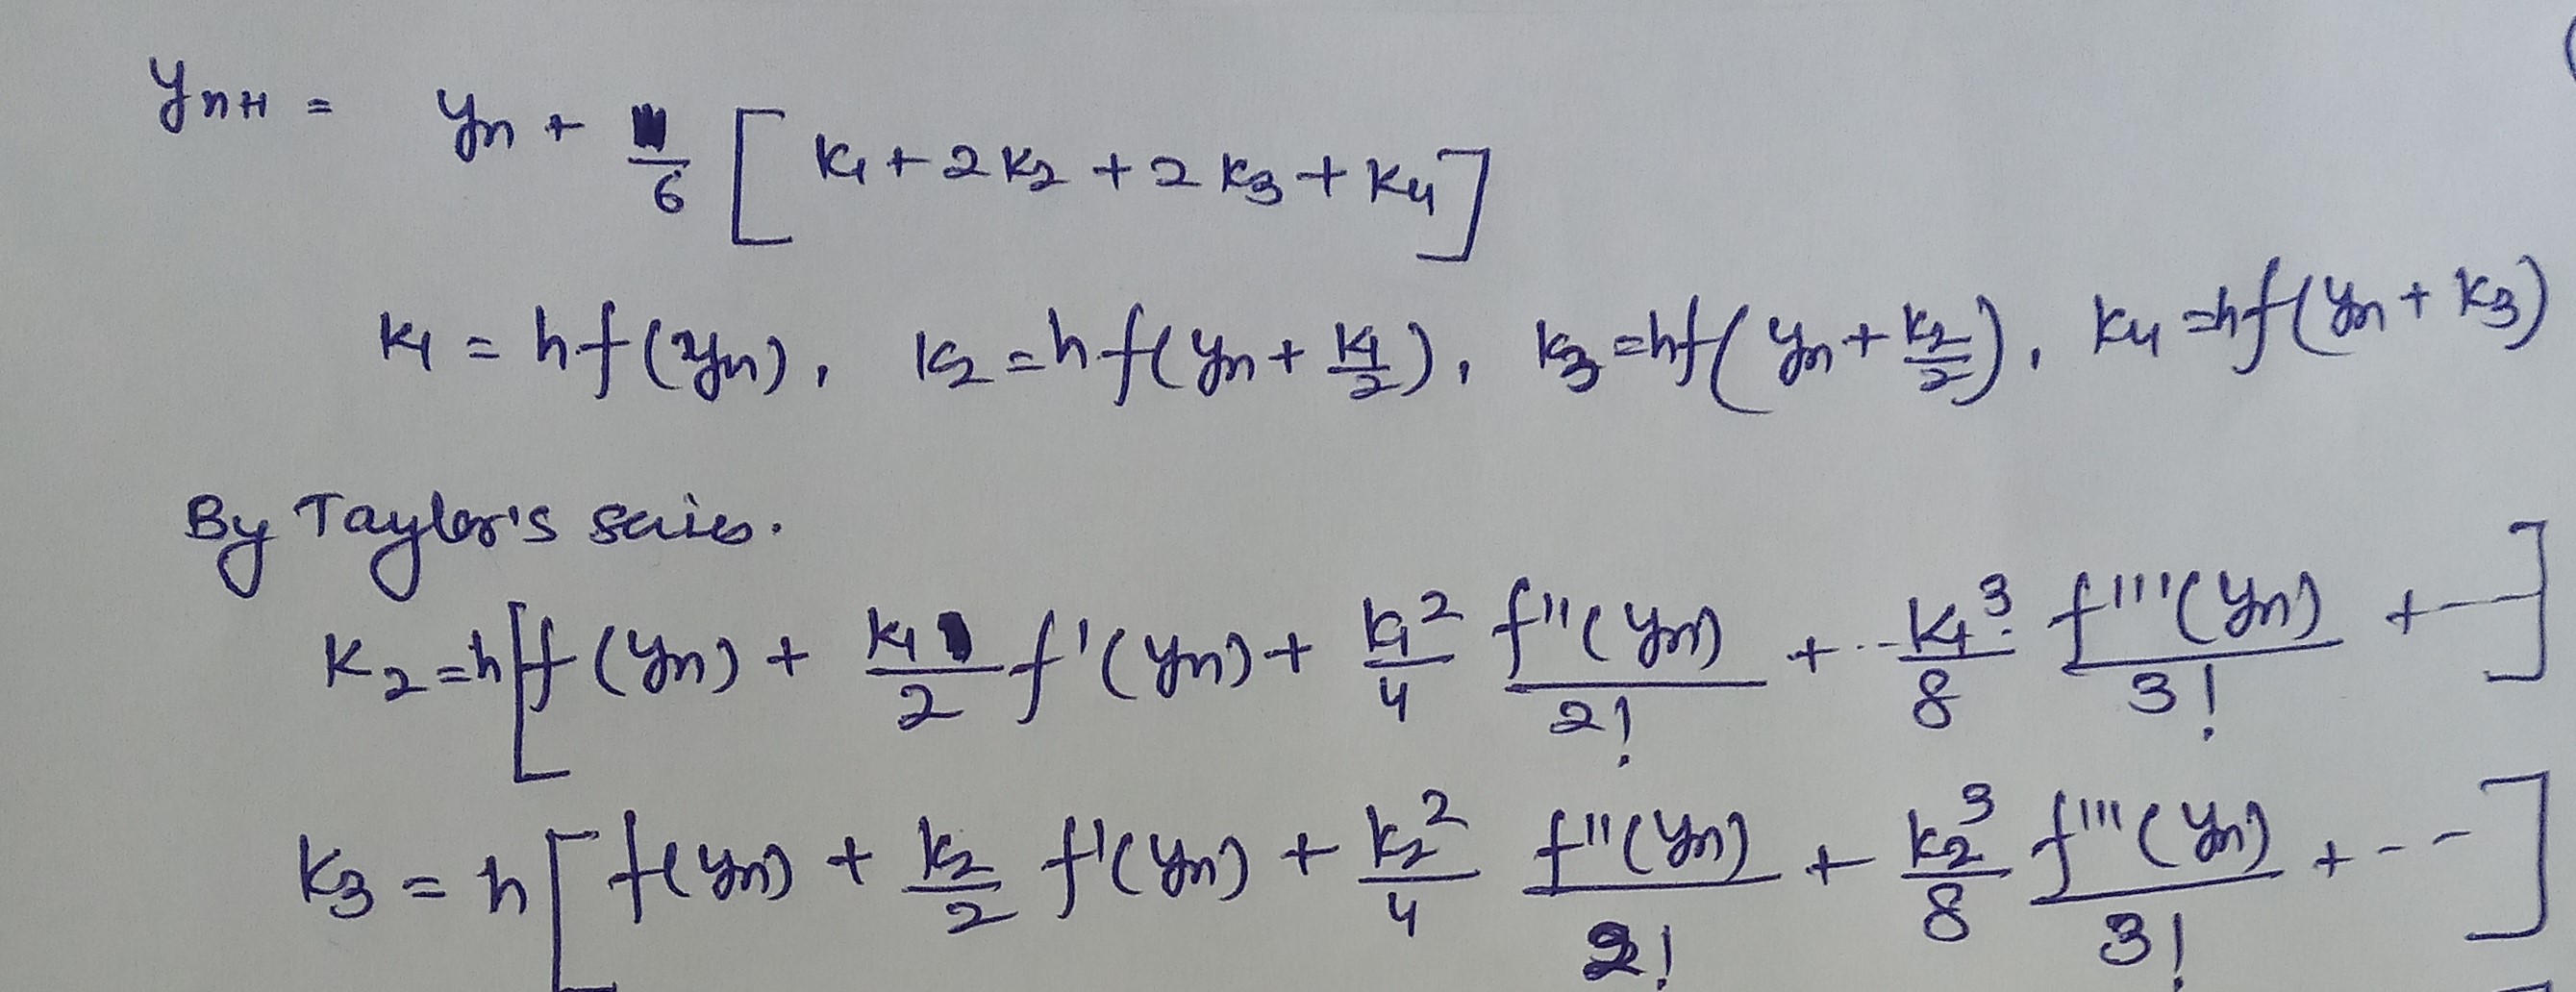 y_{n+1} = y_n + 1/6 [ K_1 + 2K_2 + 2K_3 + K_4 ]
K_1 = hf(y_n), K_2 = hf(y_n + K_1/2), K_3 = hf(y_n + K_2/2), K_4 = hf(y_n + K_3)
By Taylor's series.
K_2 = h[f(y_n) + K_1/2 f'(y_n) + K_1^2/4 f''(y_n)/2! + -- K_1^3/8 f'''(y_n)/3! + ---]
K_3 = h[f(y_n) + K_2/2 f'(y_n) + K_2^2/4 f''(y_n)/2! + K_2^3/8 f'''(y_n)/3! + ---]